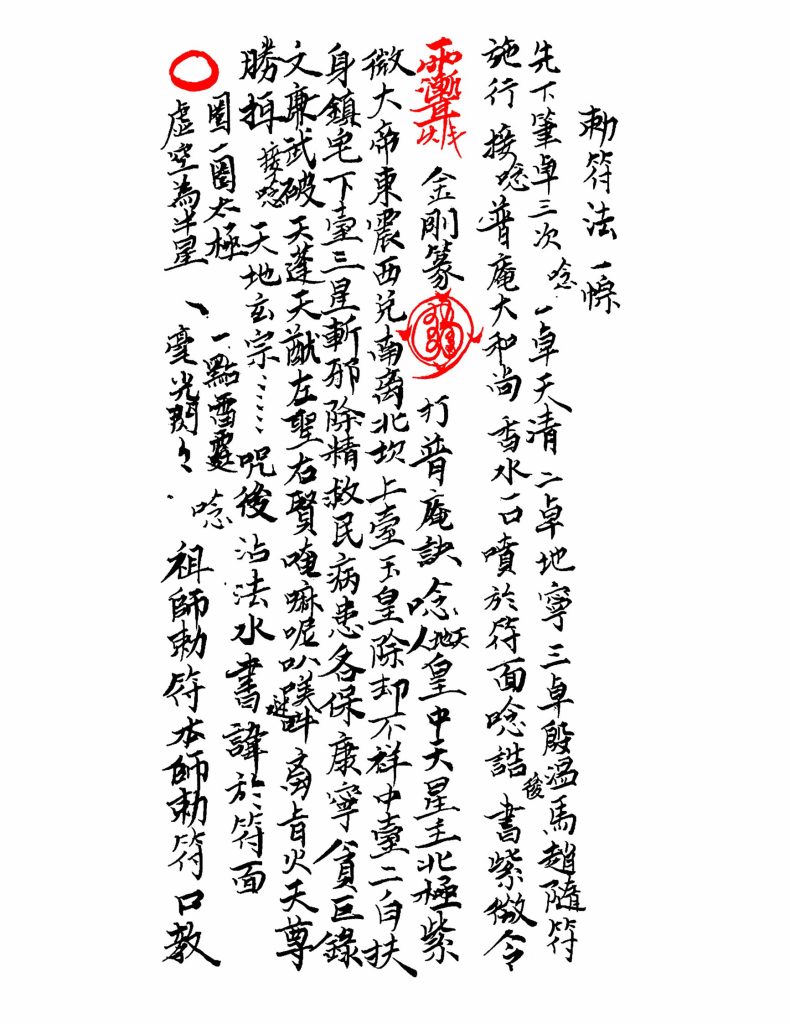 勅符法一愰
先下筆卓三次 唸 一卓天清 二卓地寧 三卓殷温馬趙隨符
施行 接唸 普庵大和尚 香水一口噴於符面 唸誥 後 書紫微令
金剛篆 打普庵訣 唸 天地人皇中天星主北極紫
微大帝東震西兌南离北坎上臺玉皇除却不祥中臺二白扶
身鎮宅下臺三星斬邪除精救民病患各保康寧貪巨錄
文廉武破 天蓬天猷左聖右賢唵嘛呢叭吽 天尊
勝 接唸 天地玄宗…… 咒後 沾法水書諱於符面
圈一圈太極 一點雷霆 唸 祖師勅符本師勅符口教
虛空為半星 丶 毫光閃々